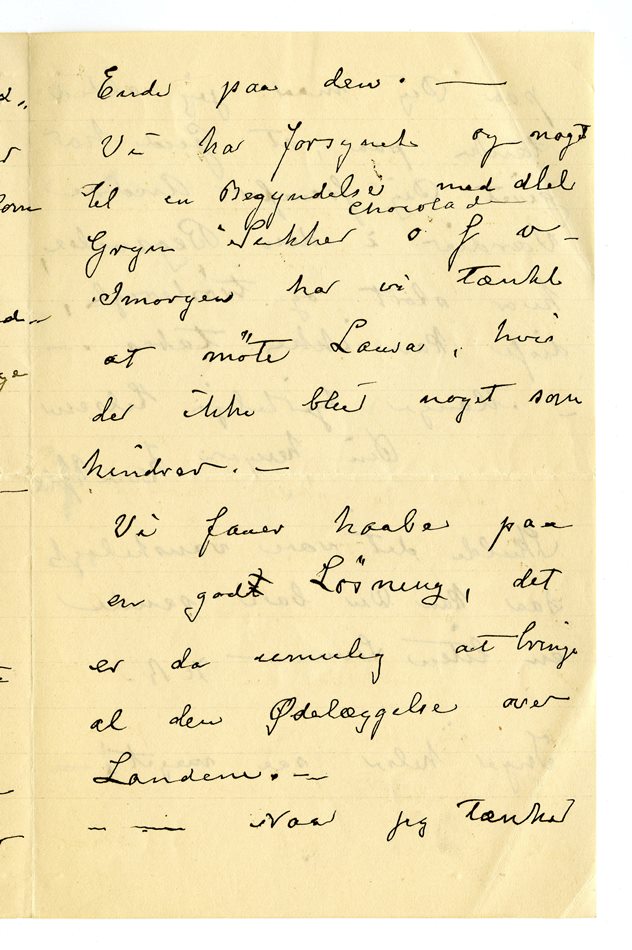 Ende paa den. —
Vi har forsynet og noget
til en Begyndelse med
Chocolad
Gryn Sukker o f v —
Imorgen har vi tænkt
at möte Laura, hvis
der ikke blir noget som
hindrer. —
Vi faaer haabe paa
en god Lösning, det
er da umulig at bringe
al den Ødelæggelse over
Landene. —
— — Naar jeg tænker